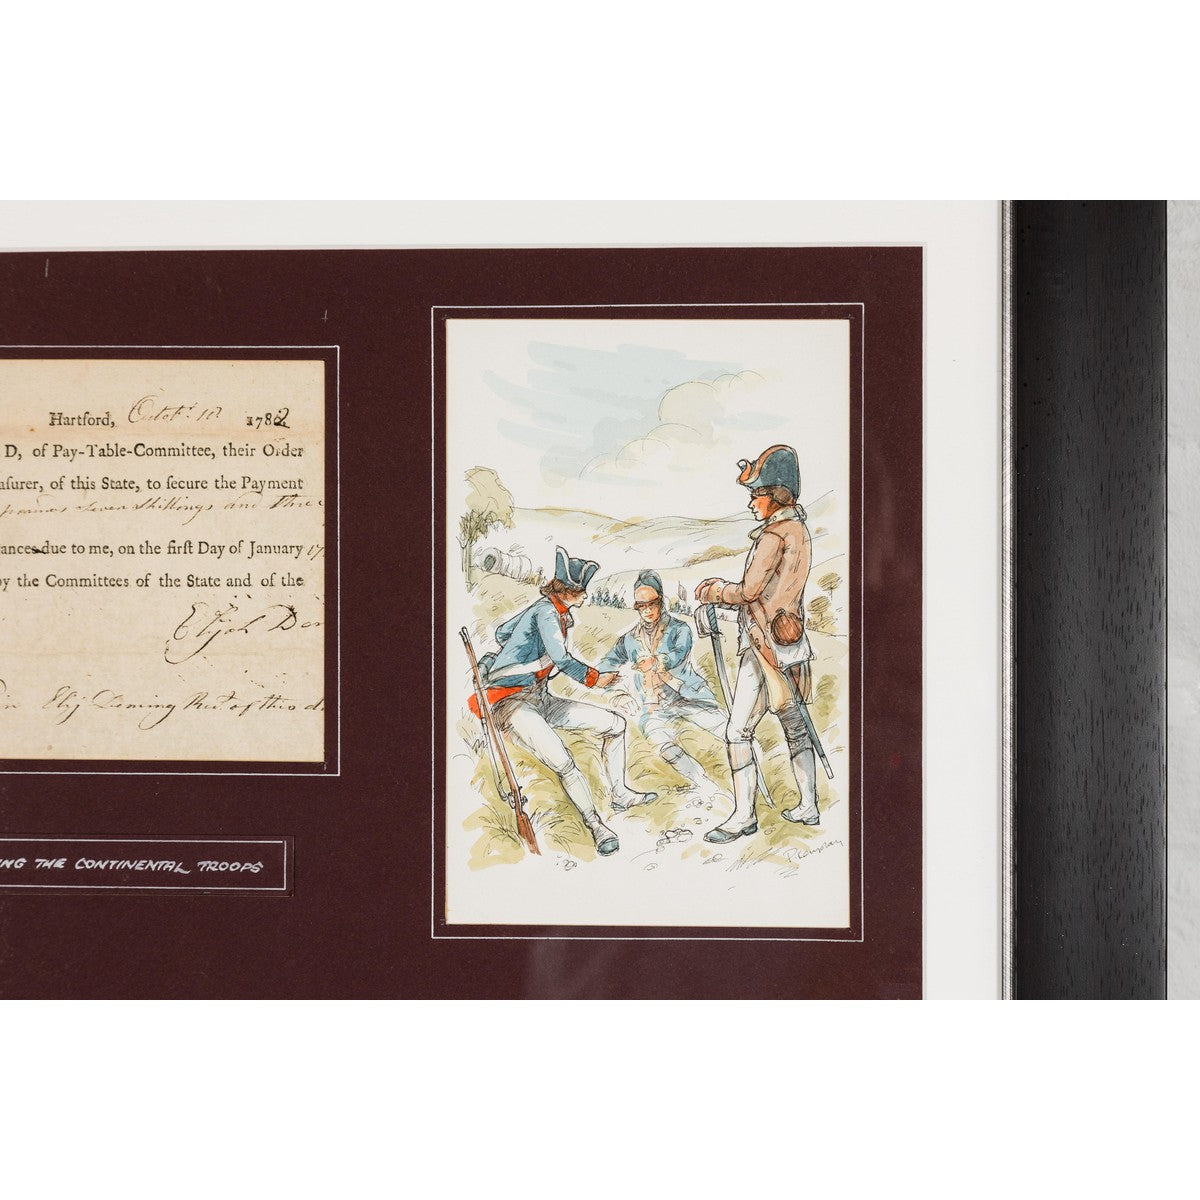 Hartford, Octobr. 10 1782
D, of Pay-Table-Committee, their Order
aſurer, of this State, to ſecure the Payment
seven Shillings and three
ances due to me, on the firſt Day of January 17
by the Committees of the State and of the
Elijah Dem
Elij Deming Rect of this
NG THE CONTINENTAL TROOPS